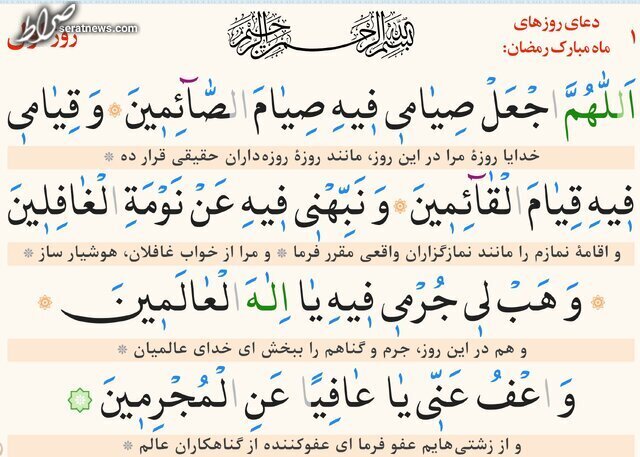 ۱
دعای روزهای
ماه مبارک رمضان:
بسم الله الرحمن الرحیم
روز اول
صراط
seratnews.com
اَللّٰهُمَّ اجْعَلْ صِیٰامی فیهِ صِیٰامَ الصّٰآئِمینَ وَ قِیٰامی
خدایا روزهٔ مرا در این روز، مانند روزهٔ روزه‌داران حقیقی قرار ده
فیهِ قِیٰامَ الْقٰآئِمینَ وَ نَبِّهْنی فیهِ عَنْ نَوْمَةِ الْغٰافِلینَ
و اقامهٔ نمازم را مانند نمازگزاران واقعی مقرر فرما و مرا از خواب غافلان، هوشیار ساز
وَ هَبْ لی جُرْمی فیهِ یٰا اِلٰهَ الْعٰالَمینَ
و هم در این روز، جرم و گناهم را ببخش ای خدای عالمیان
وَ اعْفُ عَنّی یٰا عٰافِیًا عَنِ الْمُجْرِمینَ
و از زشتی‌هایم عفو فرما ای عفوکننده از گناهکاران عالم